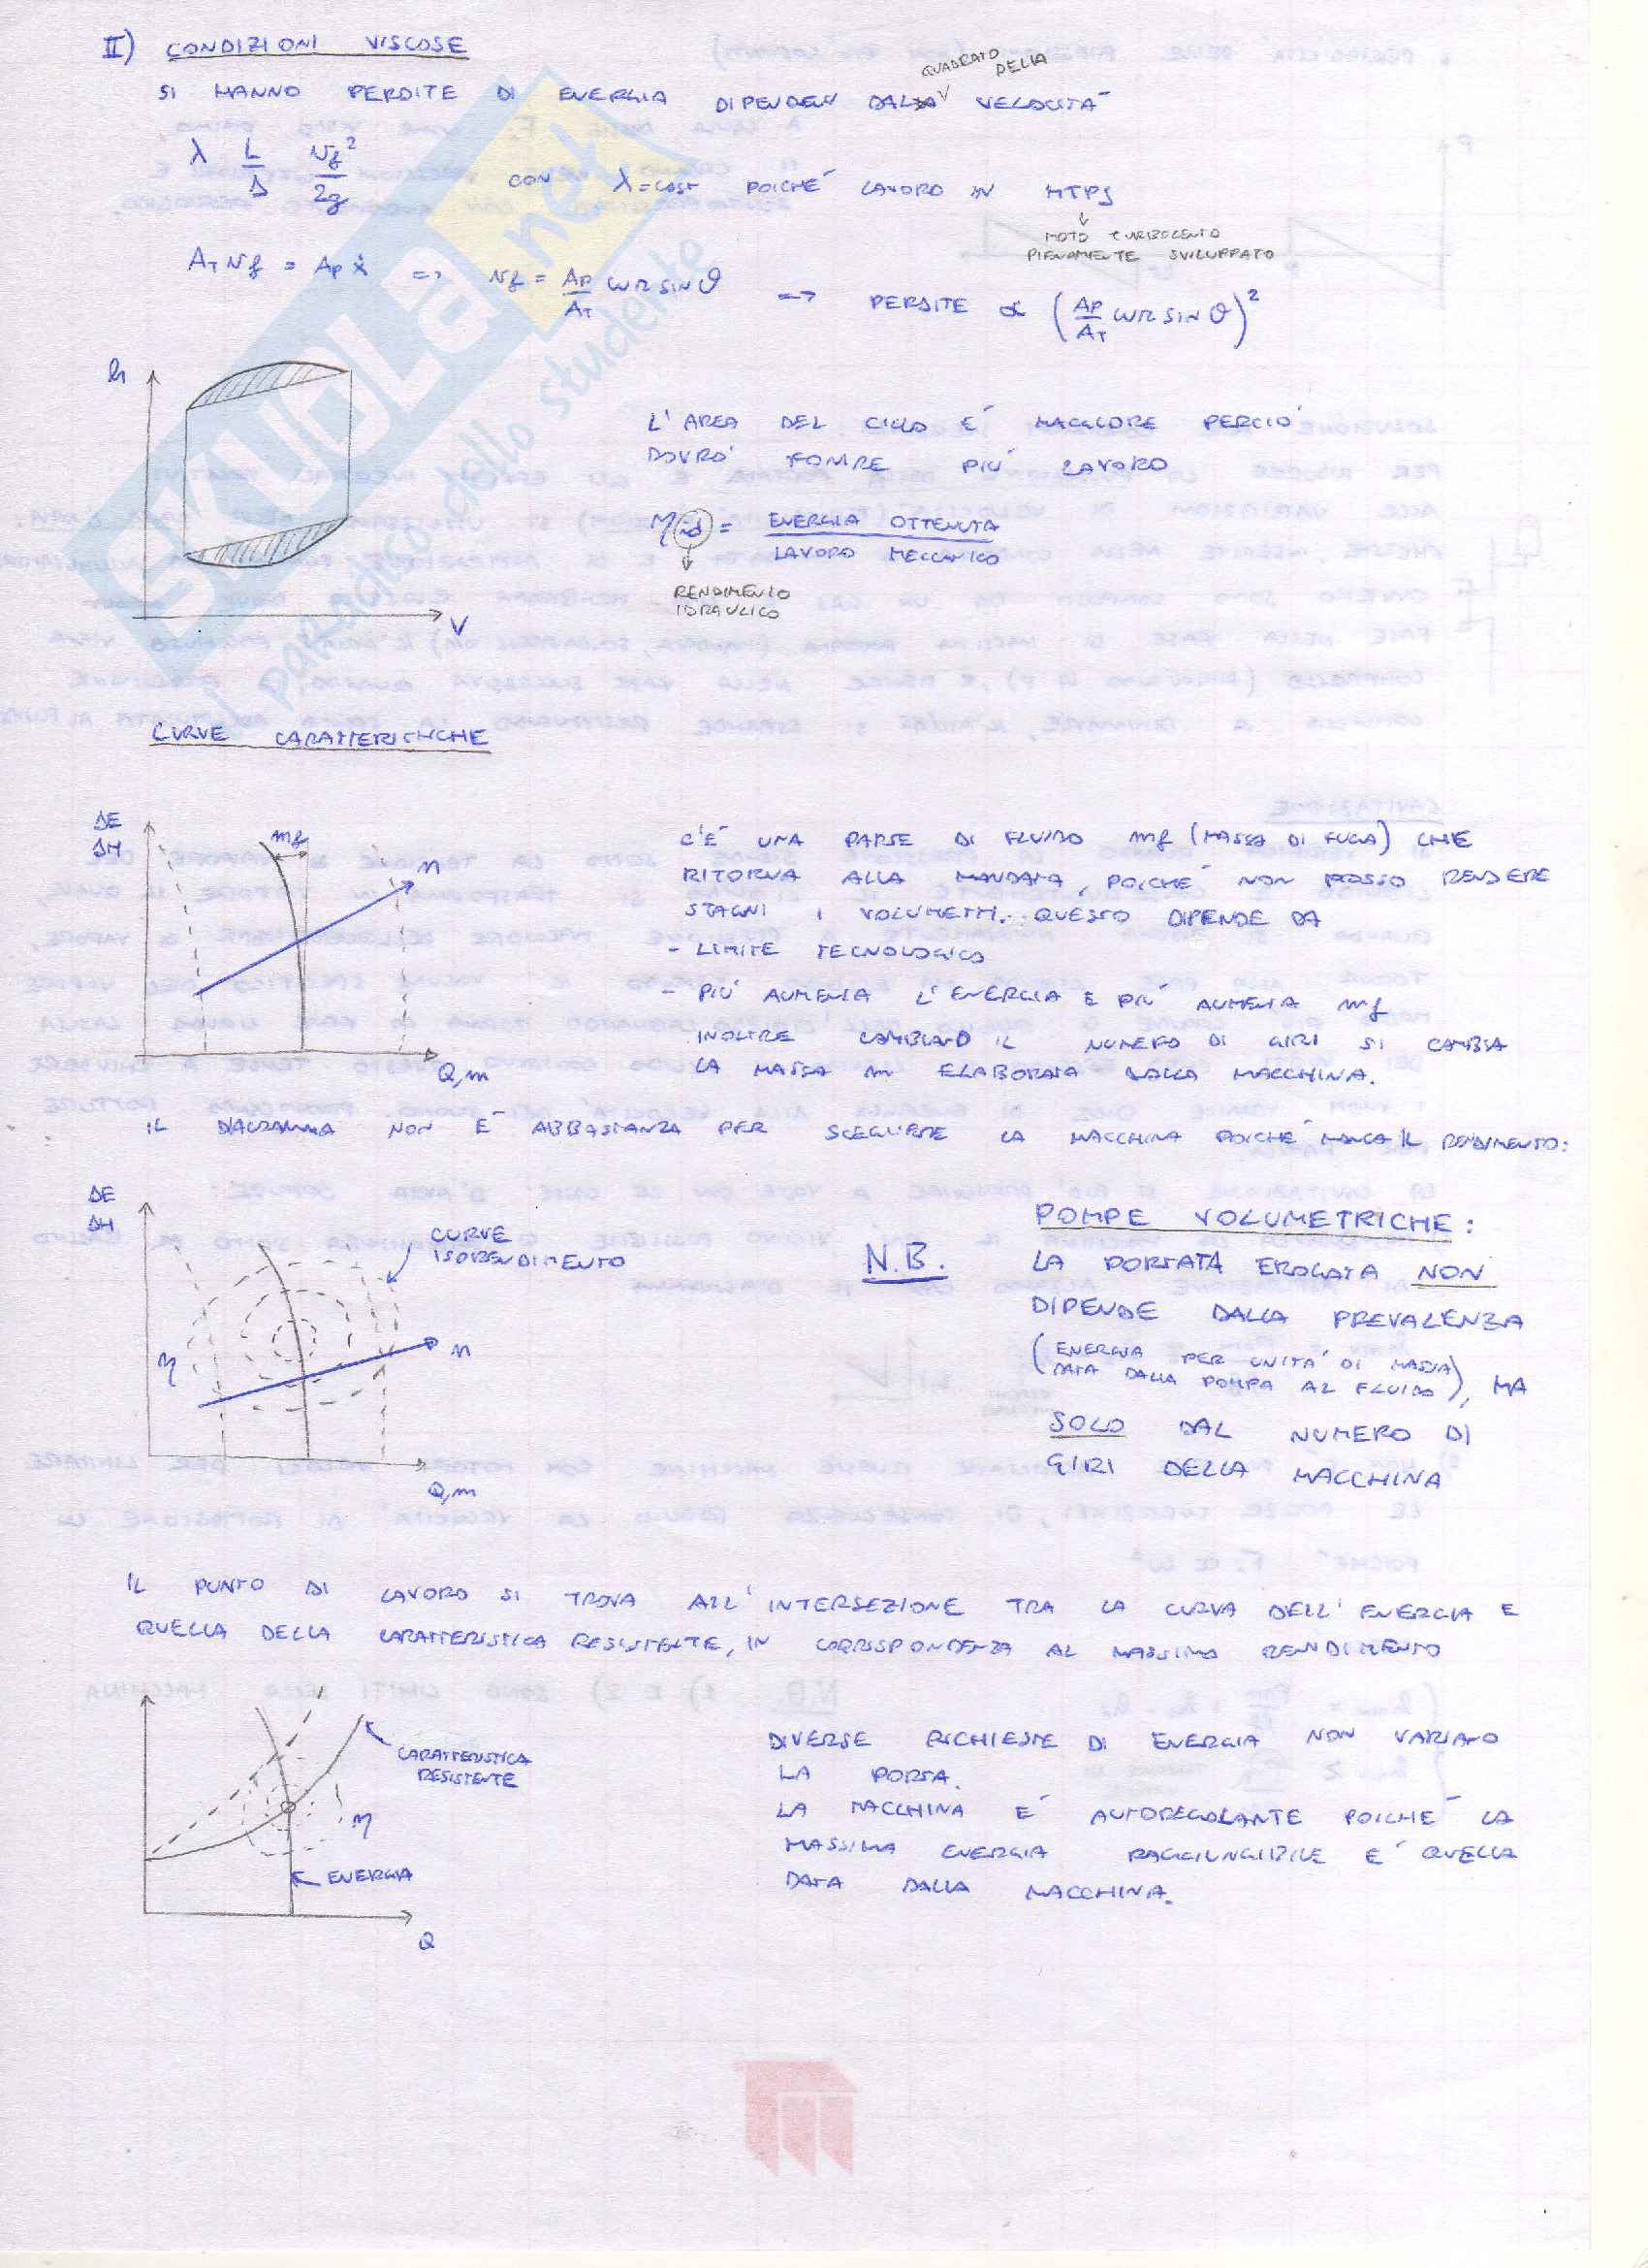 II) CONDIZIONI VISCOSE
QUADRATO DELLA
SI HANNO PERDITE DI ENERGIA DIPENDENTI DAL VELOCITÀ
λ L/D vf²/2g CON λ=COST POICHÈ LAVORO IN MTPS
MOTO TURBOLENTO
PIENAMENTE SVILUPPATO
AT vf = AP ẋ => vf = AP/AT ωR SIN ϑ => PERDITE ∝ (AP/AT ωR SIN ϑ)²
h
V
L'AREA DEL CICLO È MAGGIORE PERCIÒ
DOVRÒ FORNIRE PIÙ LAVORO
ηid = ENERGIA OTTENUTA / LAVORO MECCANICO
RENDIMENTO
IDRAULICO
CURVE CARATTERISTICHE
ΔE
ΔH
mf
n
Q,m
C'È UNA PARTE DI FLUIDO mf (MASSA DI FUGA) CHE
RITORNA ALLA MANDATA, POICHÈ NON POSSO RENDERE
STAGNI I VOLUMETTI. QUESTO DIPENDE DA
- LIMITE TECNOLOGICO
- PIÙ AUMENTA L'ENERGIA E PIÙ AUMENTA mf
INOLTRE CAMBIANDO IL NUMERO DI GIRI SI CAMBIA
LA MASSA m ELABORATA DALLA MACCHINA.
IL DIAGRAMMA NON È ABBASTANZA PER SCEGLIERE LA MACCHINA POICHÈ MANCA IL RENDIMENTO:
ΔE
ΔH
CURVE
ISORENDIMENTO
η
n
Q,m
N.B.
POMPE VOLUMETRICHE:
LA PORTATA EROGATA NON
DIPENDE DALLA PREVALENZA
(ENERGIA PER UNITÀ DI MASSA
DATA DALLA POMPA AL FLUIDO), MA
SOLO DAL NUMERO DI
GIRI DELLA MACCHINA
IL PUNTO DI LAVORO SI TROVA ALL'INTERSEZIONE TRA LA CURVA DELL'ENERGIA E
QUELLA DELLA CARATTERISTICA RESISTENTE, IN CORRISPONDENZA AL MASSIMO RENDIMENTO
CARATTERISTICA
RESISTENTE
η
ENERGIA
Q
DIVERSE RICHIESTE DI ENERGIA NON VARIANO
LA PORTA.
LA MACCHINA È AUTOREGOLANTE POICHÈ LA
MASSIMA ENERGIA RAGGIUNGIBILE È QUELLA
DATA DALLA MACCHINA.
SKUOLA.net
il paradiso dello studente